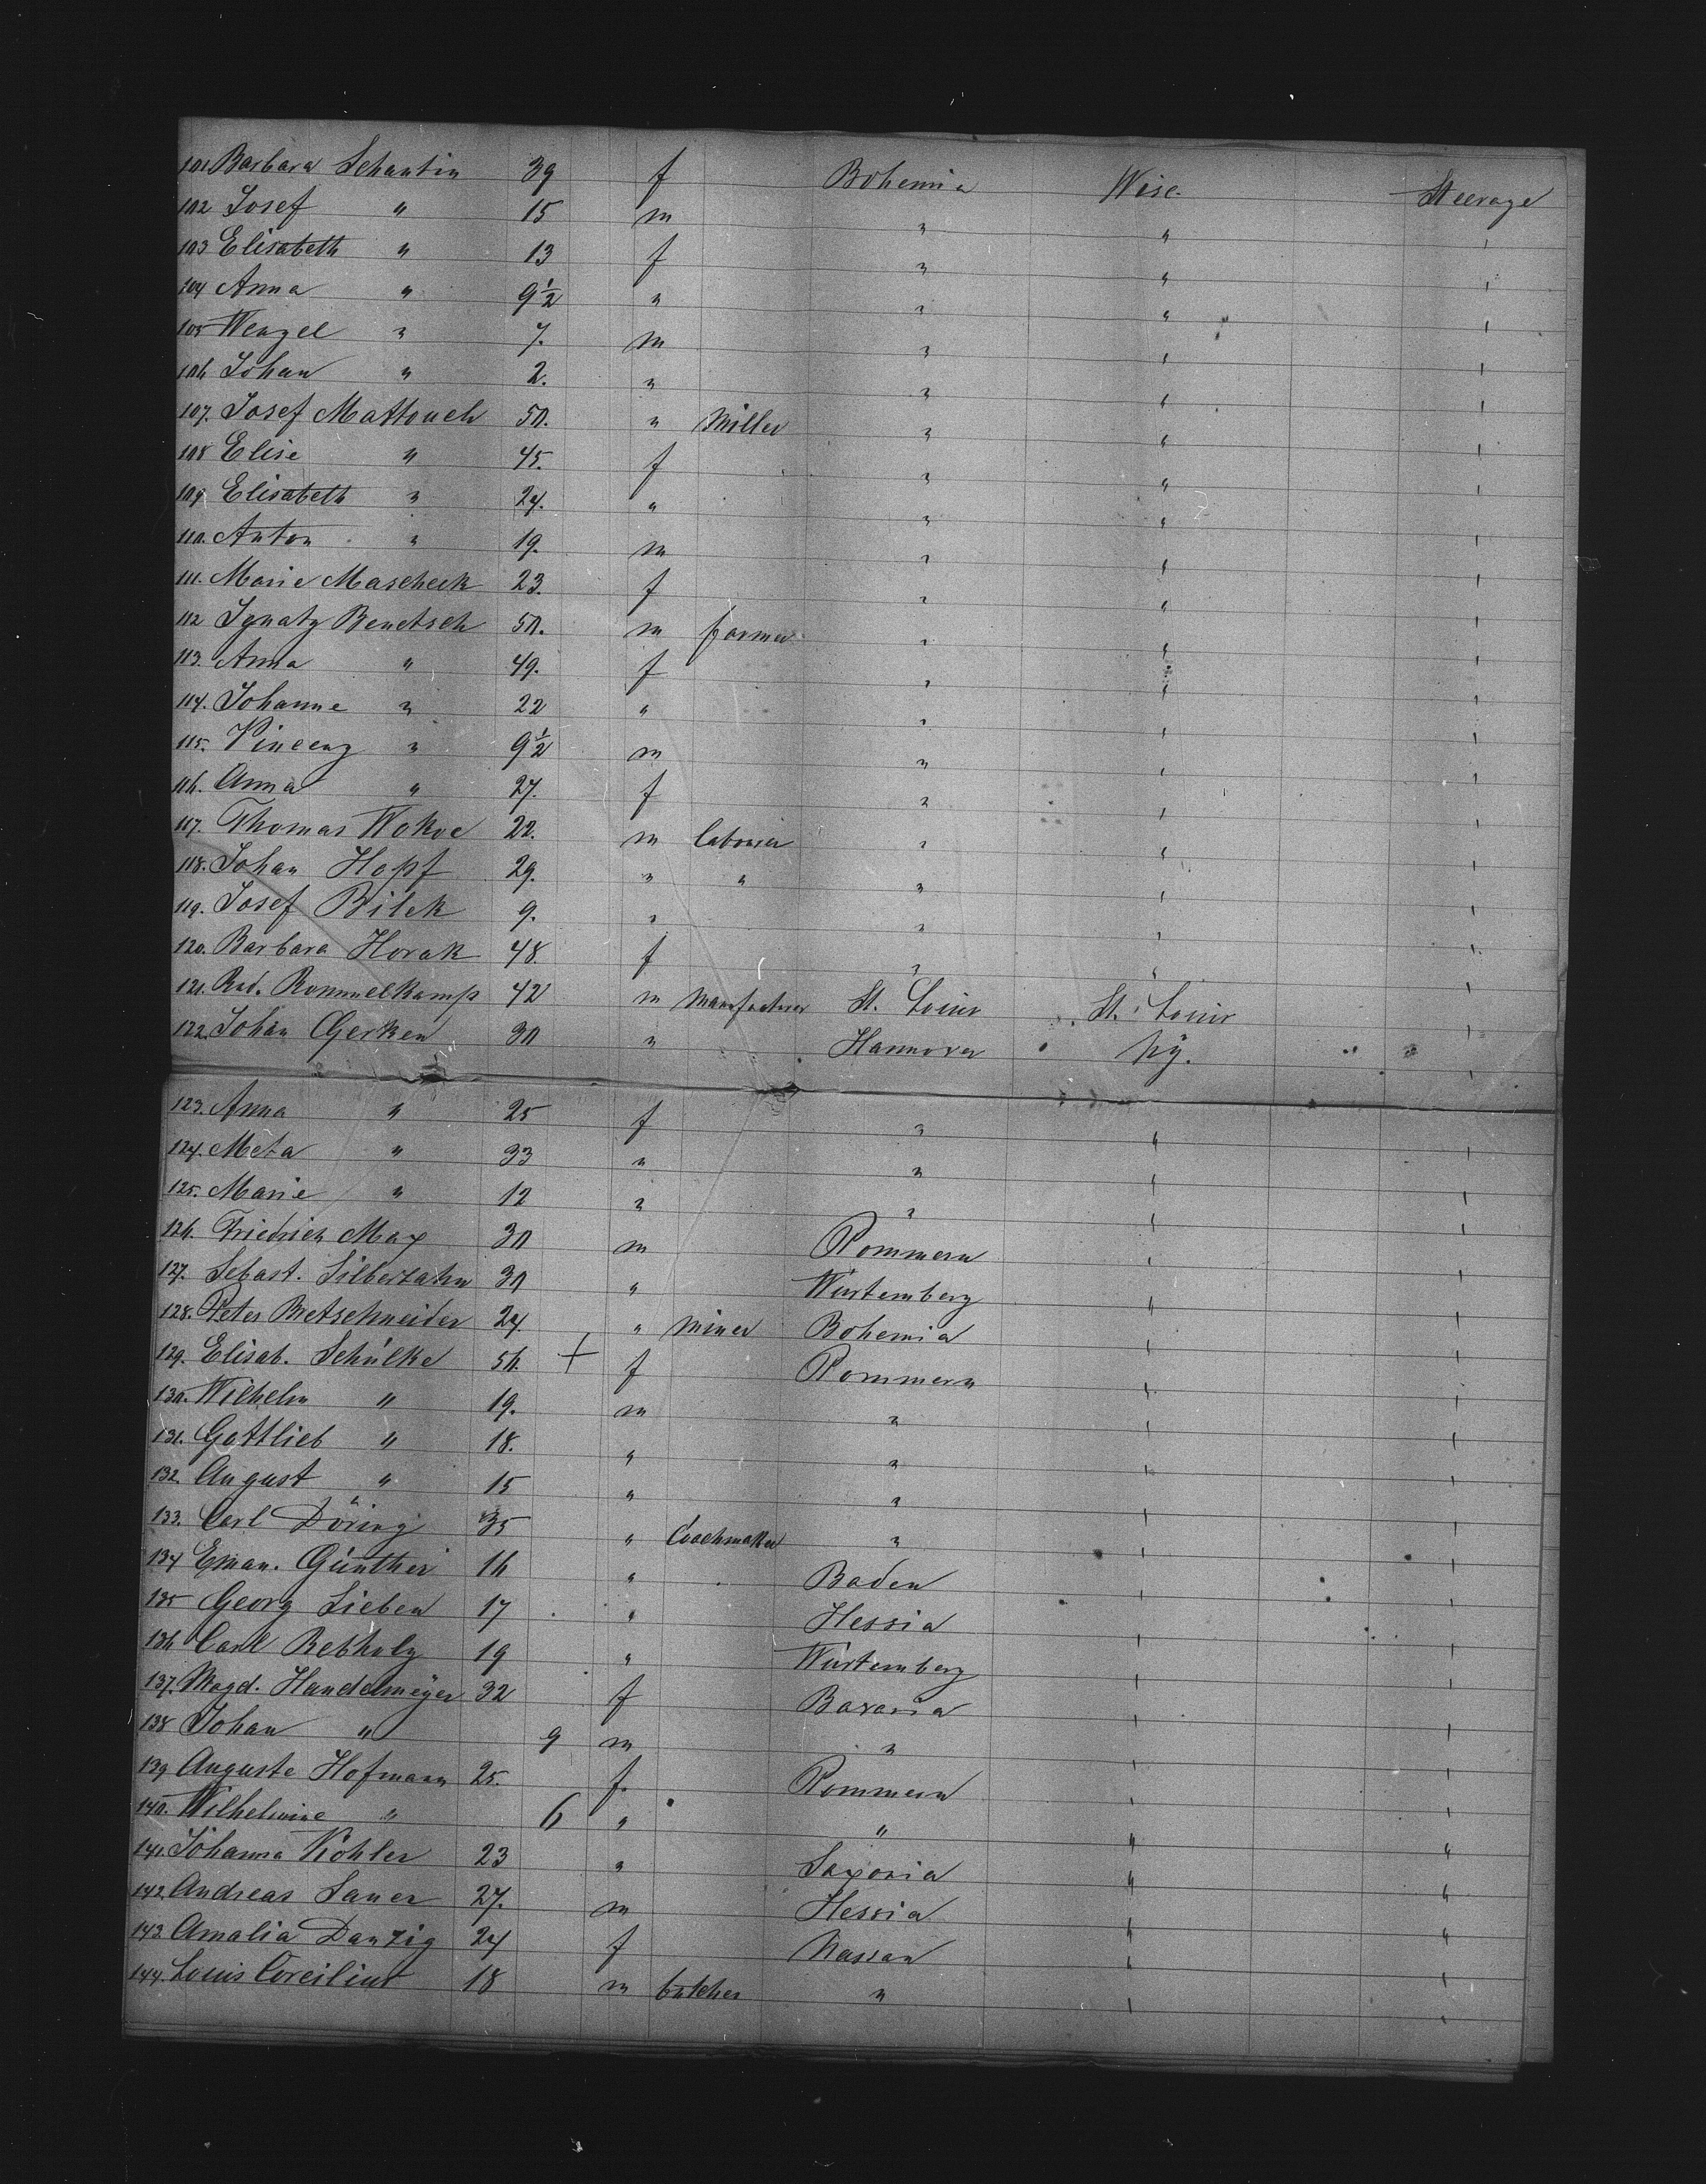 101 Barbara Schantin 39 f Bohemia Wisc. Steerage
102 Josef " 15 m " " "
103 Elisabeth " 13 f " " "
104 Anna " 9½ " " " "
105 Wenzel " 7. m " " "
106 Johan " 2. " " " "
107. Josef Mattouch 50. " Miller " " "
108 Elise " 45. f " " "
109. Elisabeth " 24. " " " "
110. Anton " 19. m " " "
111. Marie Mascheck 23. f " " "
112 Ignatz Benetsch 50. m farmer " " "
113. Anna " 49. f " " "
114. Johanne " 22 " " " "
115. Vincenz " 9½ m " " "
116. Anna " 27. f " " "
117. Thomas Wokoc 22. m labourer " " "
118. Johan Hopf 29. " " " " "
119. Josef Bilek 9. " " " "
120. Barbara Horak 48. f " " "
121. Rud. Rommelkamp 42 m Manufacturer St. Louis St. Louis "
122. Johan Gerken 30 " Hannover NY. "
123. Anna " 25 f " " "
124. Meta " 33 " " " "
125. Marie " 12 " " " "
126. Friedrich Max 30 m Pommern " "
127. Sebast. Silberzahn 30 " Würtemberg " "
128. Peter Bretschneider 24. " Miner Bohemia " "
129. Elisab. Schülke 56. + f Pommern " "
130. Wilhelm " 19. m " " "
131. Gottlieb " 18. " " " "
132. August " 15 " " " "
133. Carl Döring 35 " Coachmaker " " "
134 Eman. Günther 16 " Baden " "
135 Georg Lieben 17 " Hessia " "
136 Carl Rebholz 19 " Würtemberg " "
137. Magd. Handelmeyer 32 f Bavaria " "
138 Johan " 9 m " " "
139 Auguste Hofmann 25. f. Pommern " "
140. Wilhelmine " 6 " " " "
141. Johanna Köhler 23 " Saxonia " "
142. Andreas Sauer 27. m Hessia " "
143. Amalia Danzig 24 f Nassau " "
144. Louis Corcilius 18 m butcher " " "